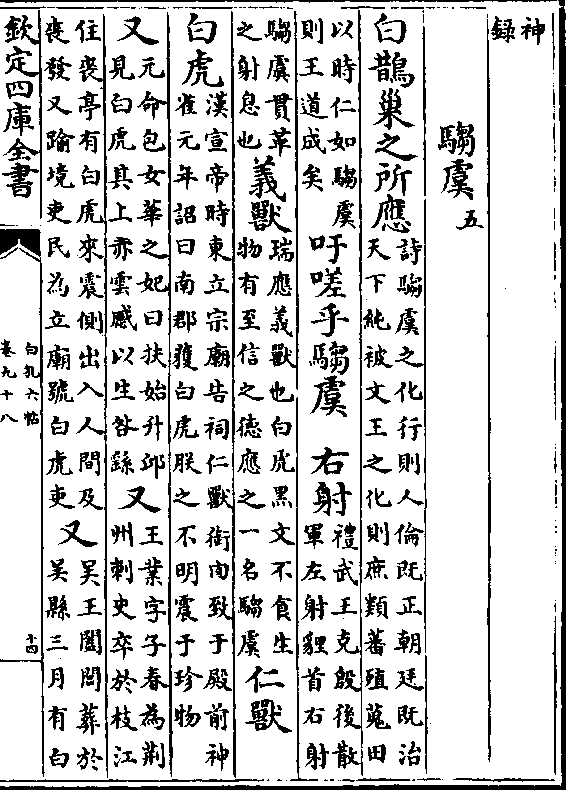 神
録
騶虞五
白鵲巢之所應詩騶虞之化行則人倫既正朝廷既治
天下純被文王之化則庶類蕃殖蒐田
以時仁如騶虞
則王道成矣吁嗟乎騶虞 右射禮武王克殷後散
軍左射貍首右射
騶虞貫革
之射息也義獸瑞應義獸也白虎黑文不食生
物有至信之德應之一名騶虞仁獸
白虎漢宣帝時東立宗廟告祠仁獸銜肉致于殿前神
雀元年詔曰南郡獲白虎朕之不明震于珍物
又元命包女華之妃曰扶始升邱
見白虎其上赤雲感以生咎繇又王業字子春為荆
州刺史卒於枝江
住喪亭有白虎來震側出入人間及
喪發又踰境吏民為立廟號白虎吏又吳王闔閭葬於
吳縣三月有白
欽定四庫全書
白孔六帖
卷九十八
十四